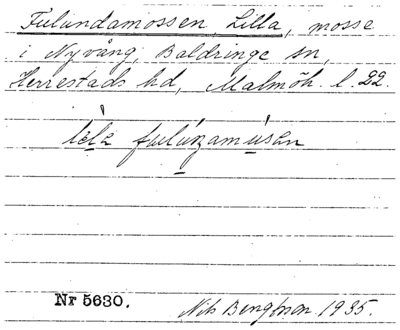 Fulundamossen, Lilla, mosse
i Nyvång, Baldringe sn,
Herrestads hd, Malmöh. l. 22.
Nr 5630.
Nils Bengtsson 1935.